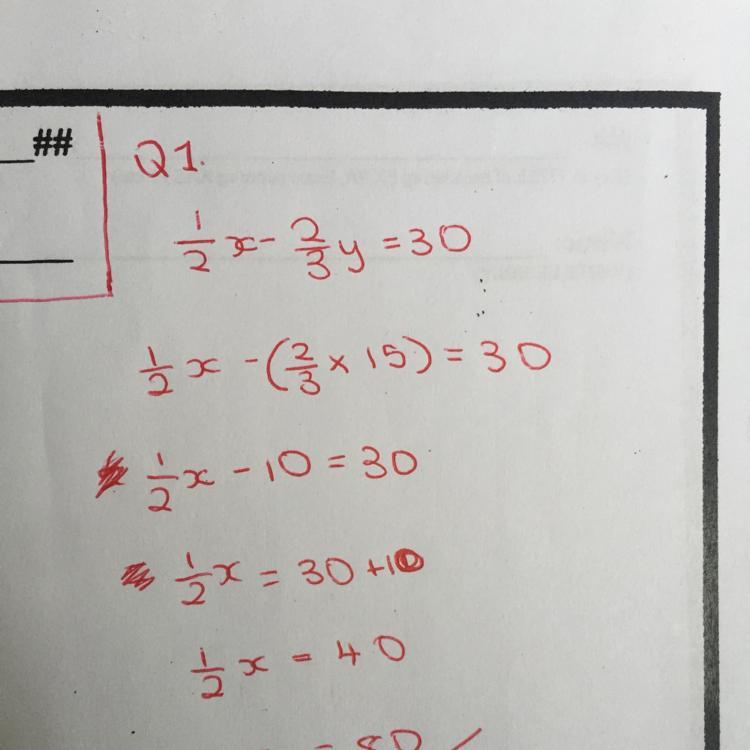 ##
Q1.
1/2 x - 2/3 y = 30
1/2 x - (2/3 × 15) = 30
1/2 x - 10 = 30
1/2 x = 30 + 10
1/2 x = 40
= 80